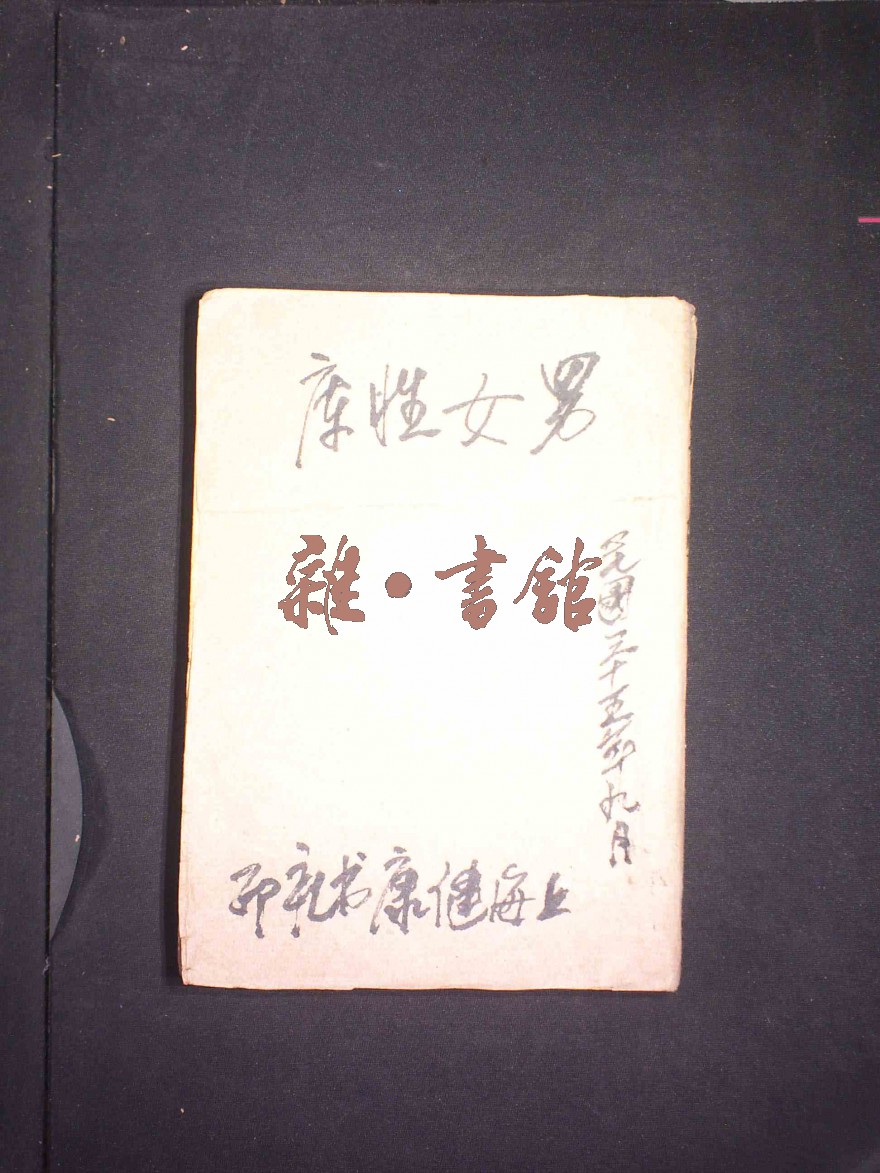 男女性库
雜·書館
民國三十五年九月
上海健康书印